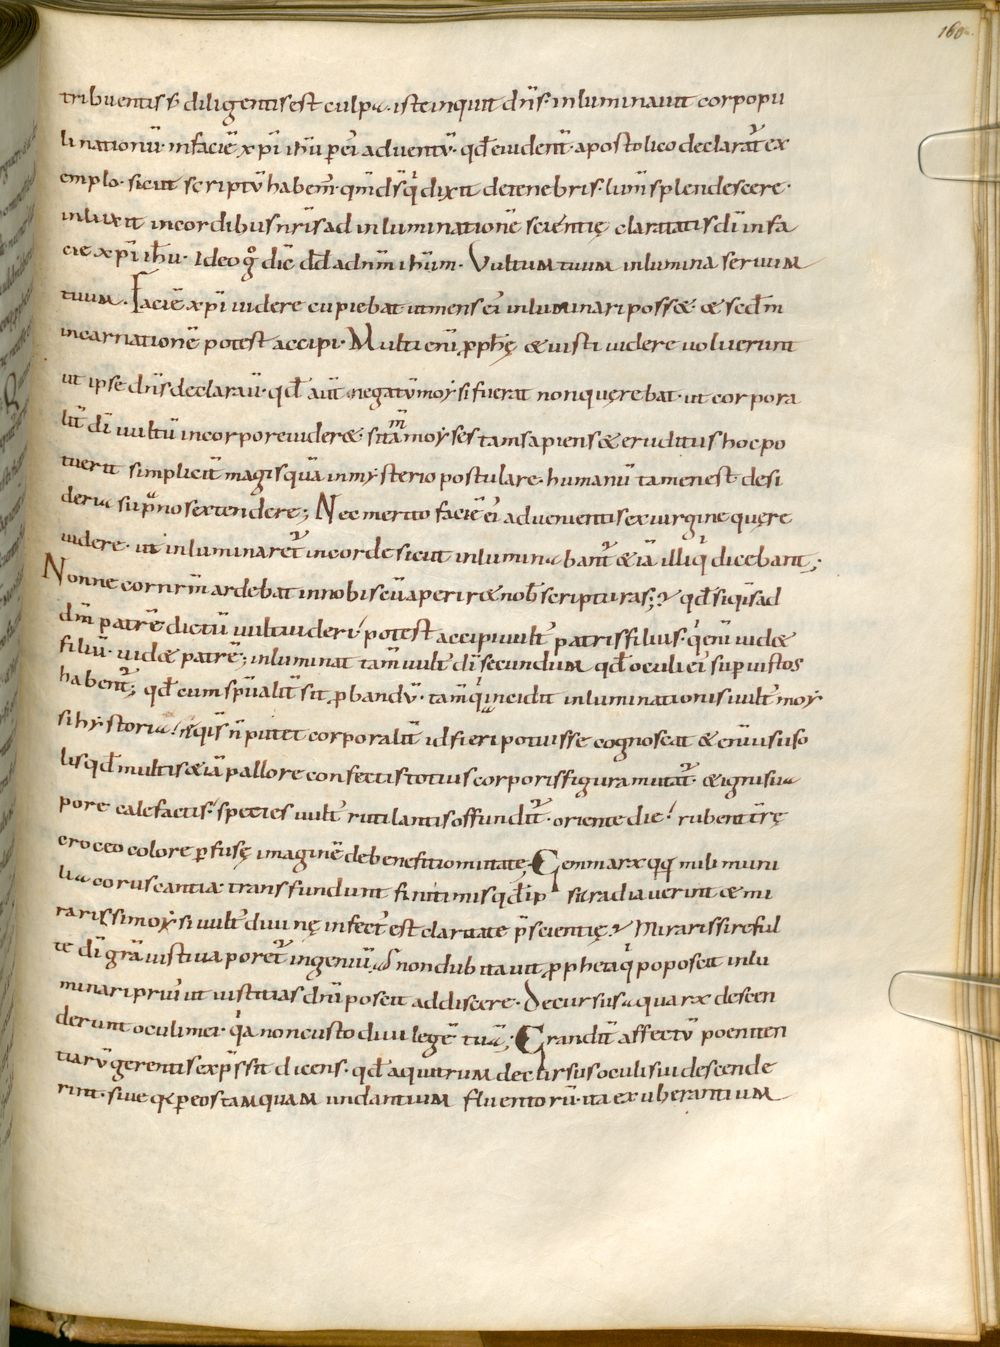 160
tribuentis s̄ diligentis est culpa. iste inquit dn̄s. inluminauit corpopu
li nationū. infaciē xp̄i ih̄u p̄ ei adventū. qd̄ euident̄ apostolico declarat̄ ex
emplo. sicut scriptū habem̄. qm̄ d̄s q̇ dixit de tenebris. lum̄ splendescere.
inluxit incordibus nr̄is ad inluminationē scientię claritatis dī infa
cie xp̄i ih̄u. Ideo g̊ dic̄ dd̄ ad nm̄ ih̄m. Vultum tuum inlumina seruum
tuum. Faciē xp̄i uidere cupiebat ut mens ei inluminari poss&. & secd̄m
incarnationē potest accipi. Multi enī p̄ph̄ę & iusti uidere uoluerunt
ut ipse dn̄s declarauī. qd̄ aut̄ negatū moẏsi fuerat non quęrebat. ut corpora
lit̄ dī uultū in corpore uider&. s̄ tam̄ moẏses tam sapiens & eruditus hoc po
tuerit simplicit̄ magis quā in mẏsterio postulare. humanū tamen est. desi
deria sup̄ nos extendere; Nec merito faciē ei aduenientis ex uirgine quęre
uidere. ut inluminaret̄ in corde sicut inluminabant̄ & iā illi q̇ dicebant;
Nonne cor nr̄m ardebat in nobis cū aperir& nob̄ scripturas; qd̄ si q̄s ad
dm̄ patrē dictū uult uideri. potest accipi uult̄ patris filius. q̇ enī uid&
filiū. uid& patrē; inluminat tam̄ uult̄ dī secundum qd̄ oculi ei sup̄ iustos
habent̄; qd̄ cum sp̄ualit̄ sit p̄bandū. tam̄ q̇ incidit inluminationis uult̄ moẏ
si hẏstoria. nēq̄s n̄ putet corporalit̄ id fieri potuisse cognoscat & enī usu so
lis qd̄ multis & iā pallore confectis totius corporis figura mutat̄. & ignis ua
pore calefactis. species uult̄ rutilantis offundit̄. oriente die. rubent tr̄ę
croceo colore p̄fusę imaginē de benefitio mutate; Gemmarx qq̄ mili muni
lia coruscantia transfundunt finitimis qd̄ ip sit radiauerint & mi
raris si moẏsi uult̄ diuinę infect̄ est claritate p̄scientię. Miraris si reful
te dī grā iustitia poret̄ ingeniū. s̄ non dubitauit p̄pheta q̇ poposcit inlu
minari priuī ut iustitias dn̄i poscit addiscere. Decursus aquarx descen
derunt oculi mei. q̇a non custodiui legē tuā; Grandit̄ affectū poeniten
tiarū gerentis exp̄ssit dicens. qd̄ aquarum decursus oculi sui descende
rint. siue q̄ p̄ eos tamquam undantium fluentorū. ita exuberantium